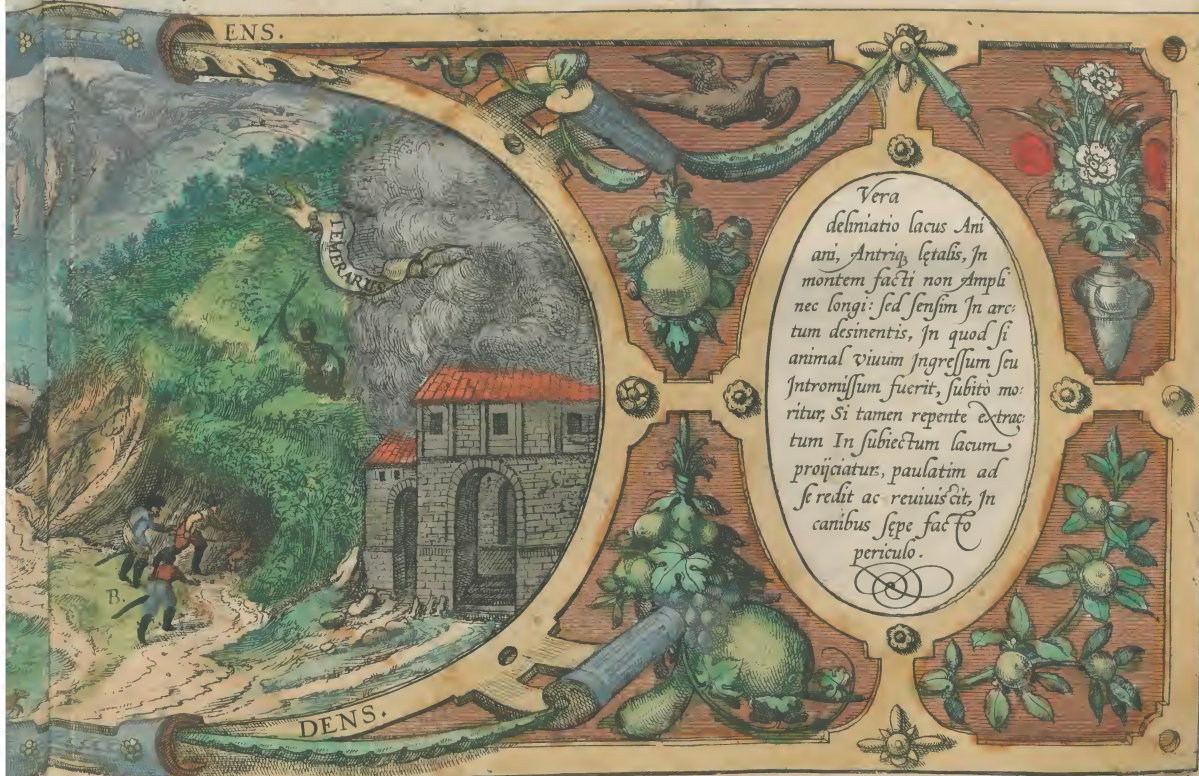 ENS.
TEMERARIUS
B.
DENS.
Vera
deliniatio lacus Ani
ani, Antriq₃ lętalis, In
montem facti non Ampli
nec longi: sed sensim In arc:
tum desinentis, In quod si
animal viuum Ingressum seu
Intromissum fuerit, subitò mo:
ritur, Si tamen repente extrac:
tum In subiectum lacum
proijciatur, paulatim ad
se redit ac reuiuiscit, In
canibus sępe facto
periculo.